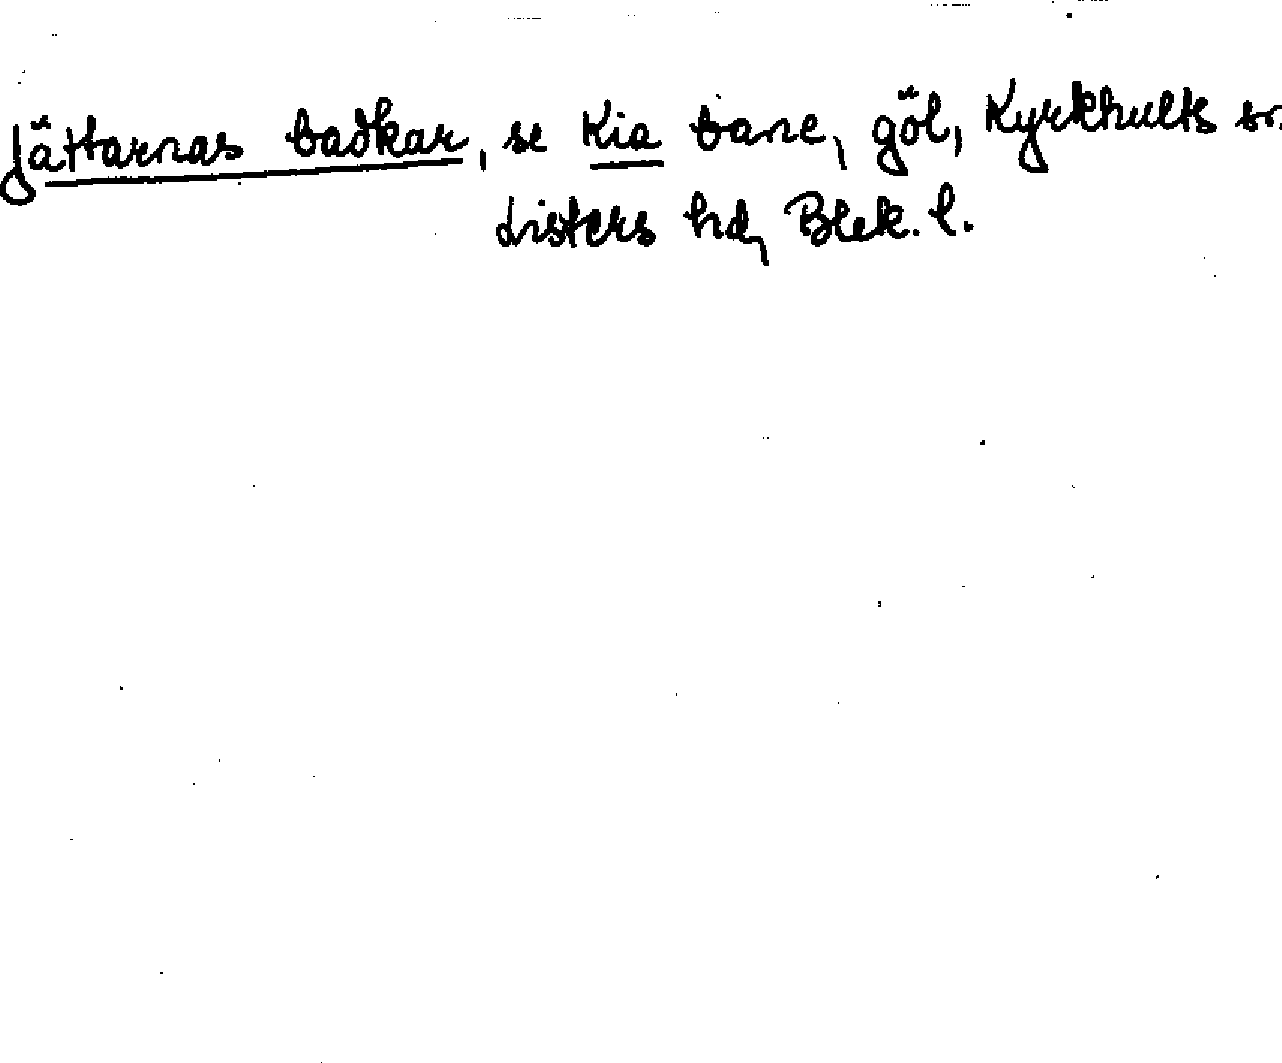 Jättarnas badkar, se Kia bane, göl, Kyrkhults sn.
Listers hd, Blek. l.